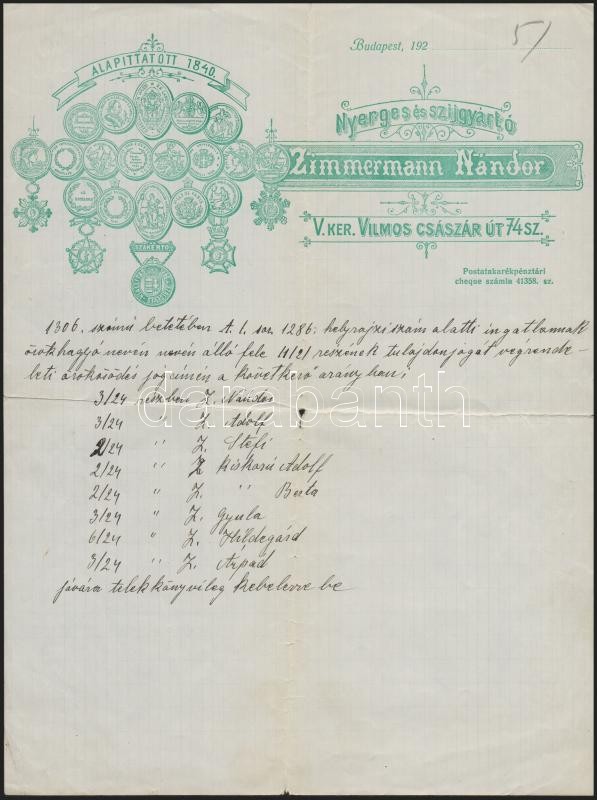 Budapest, 192
5/
ALAPITTATOTT 1840.
Nyerges és szijgyártó
Zimmermann Nándor
V. KER. VILMOS CSÁSZÁR ÚT 74 SZ.
SZAKÉRTŐ
Postatakarékpénztári
cheque számla 41358. sz.
1306. számú betétében A. I. sor. 1286. helyrajzi szám alatti ingatlannak
örökhagyó nevén nevén álló fele (1/2) részének tulajdonjogát végrende-
leti öröklődés jogcímén a következő arányban:
3/24 részben Z. Nándor
3/24 " Z. Adolf
2/24 " Z. Stefi
2/24 " Z. kiskorú Adolf
2/24 " Z. " Berta
3/24 " Z. Gyula
6/24 " Z. Hildegárd
3/24 " Z. Árpád
javára telekkönyvileg kebelezze be
darabanth